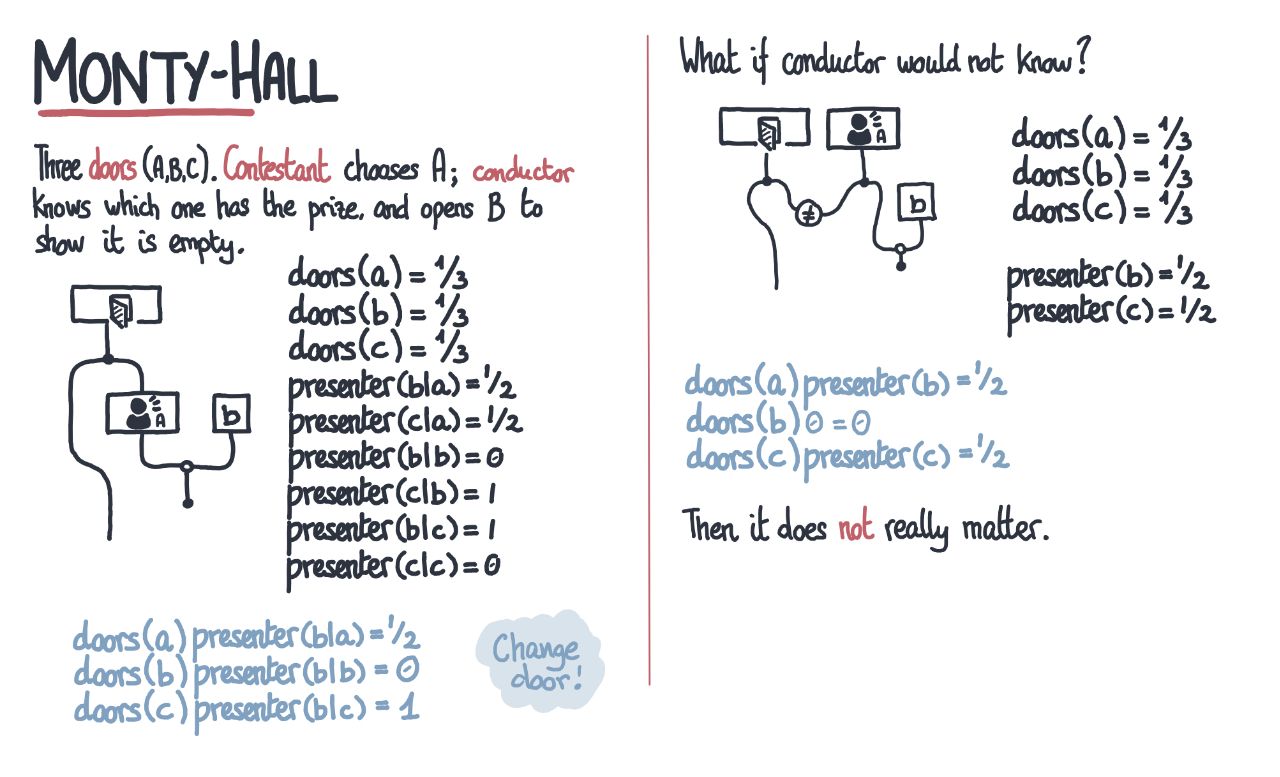 MONTY-HALL
Three doors (A,B,C). Contestant chooses A; conductor
knows which one has the prize, and opens B to
show it is empty.
A
b
doors(a) = 1/3
doors(b) = 1/3
doors(c) = 1/3
presenter(b|a) = 1/2
presenter(c|a) = 1/2
presenter(b|b) = 0
presenter(c|b) = 1
presenter(b|c) = 1
presenter(c|c) = 0
doors(a) presenter(b|a) = 1/2
doors(b) presenter(b|b) = 0
doors(c) presenter(b|c) = 1
Change
door!
What if conductor would not know?
A
≠
b
doors(a) = 1/3
doors(b) = 1/3
doors(c) = 1/3
presenter(b) = 1/2
presenter(c) = 1/2
doors(a) presenter(b) = 1/2
doors(b) 0 = 0
doors(c) presenter(c) = 1/2
Then it does not really matter.